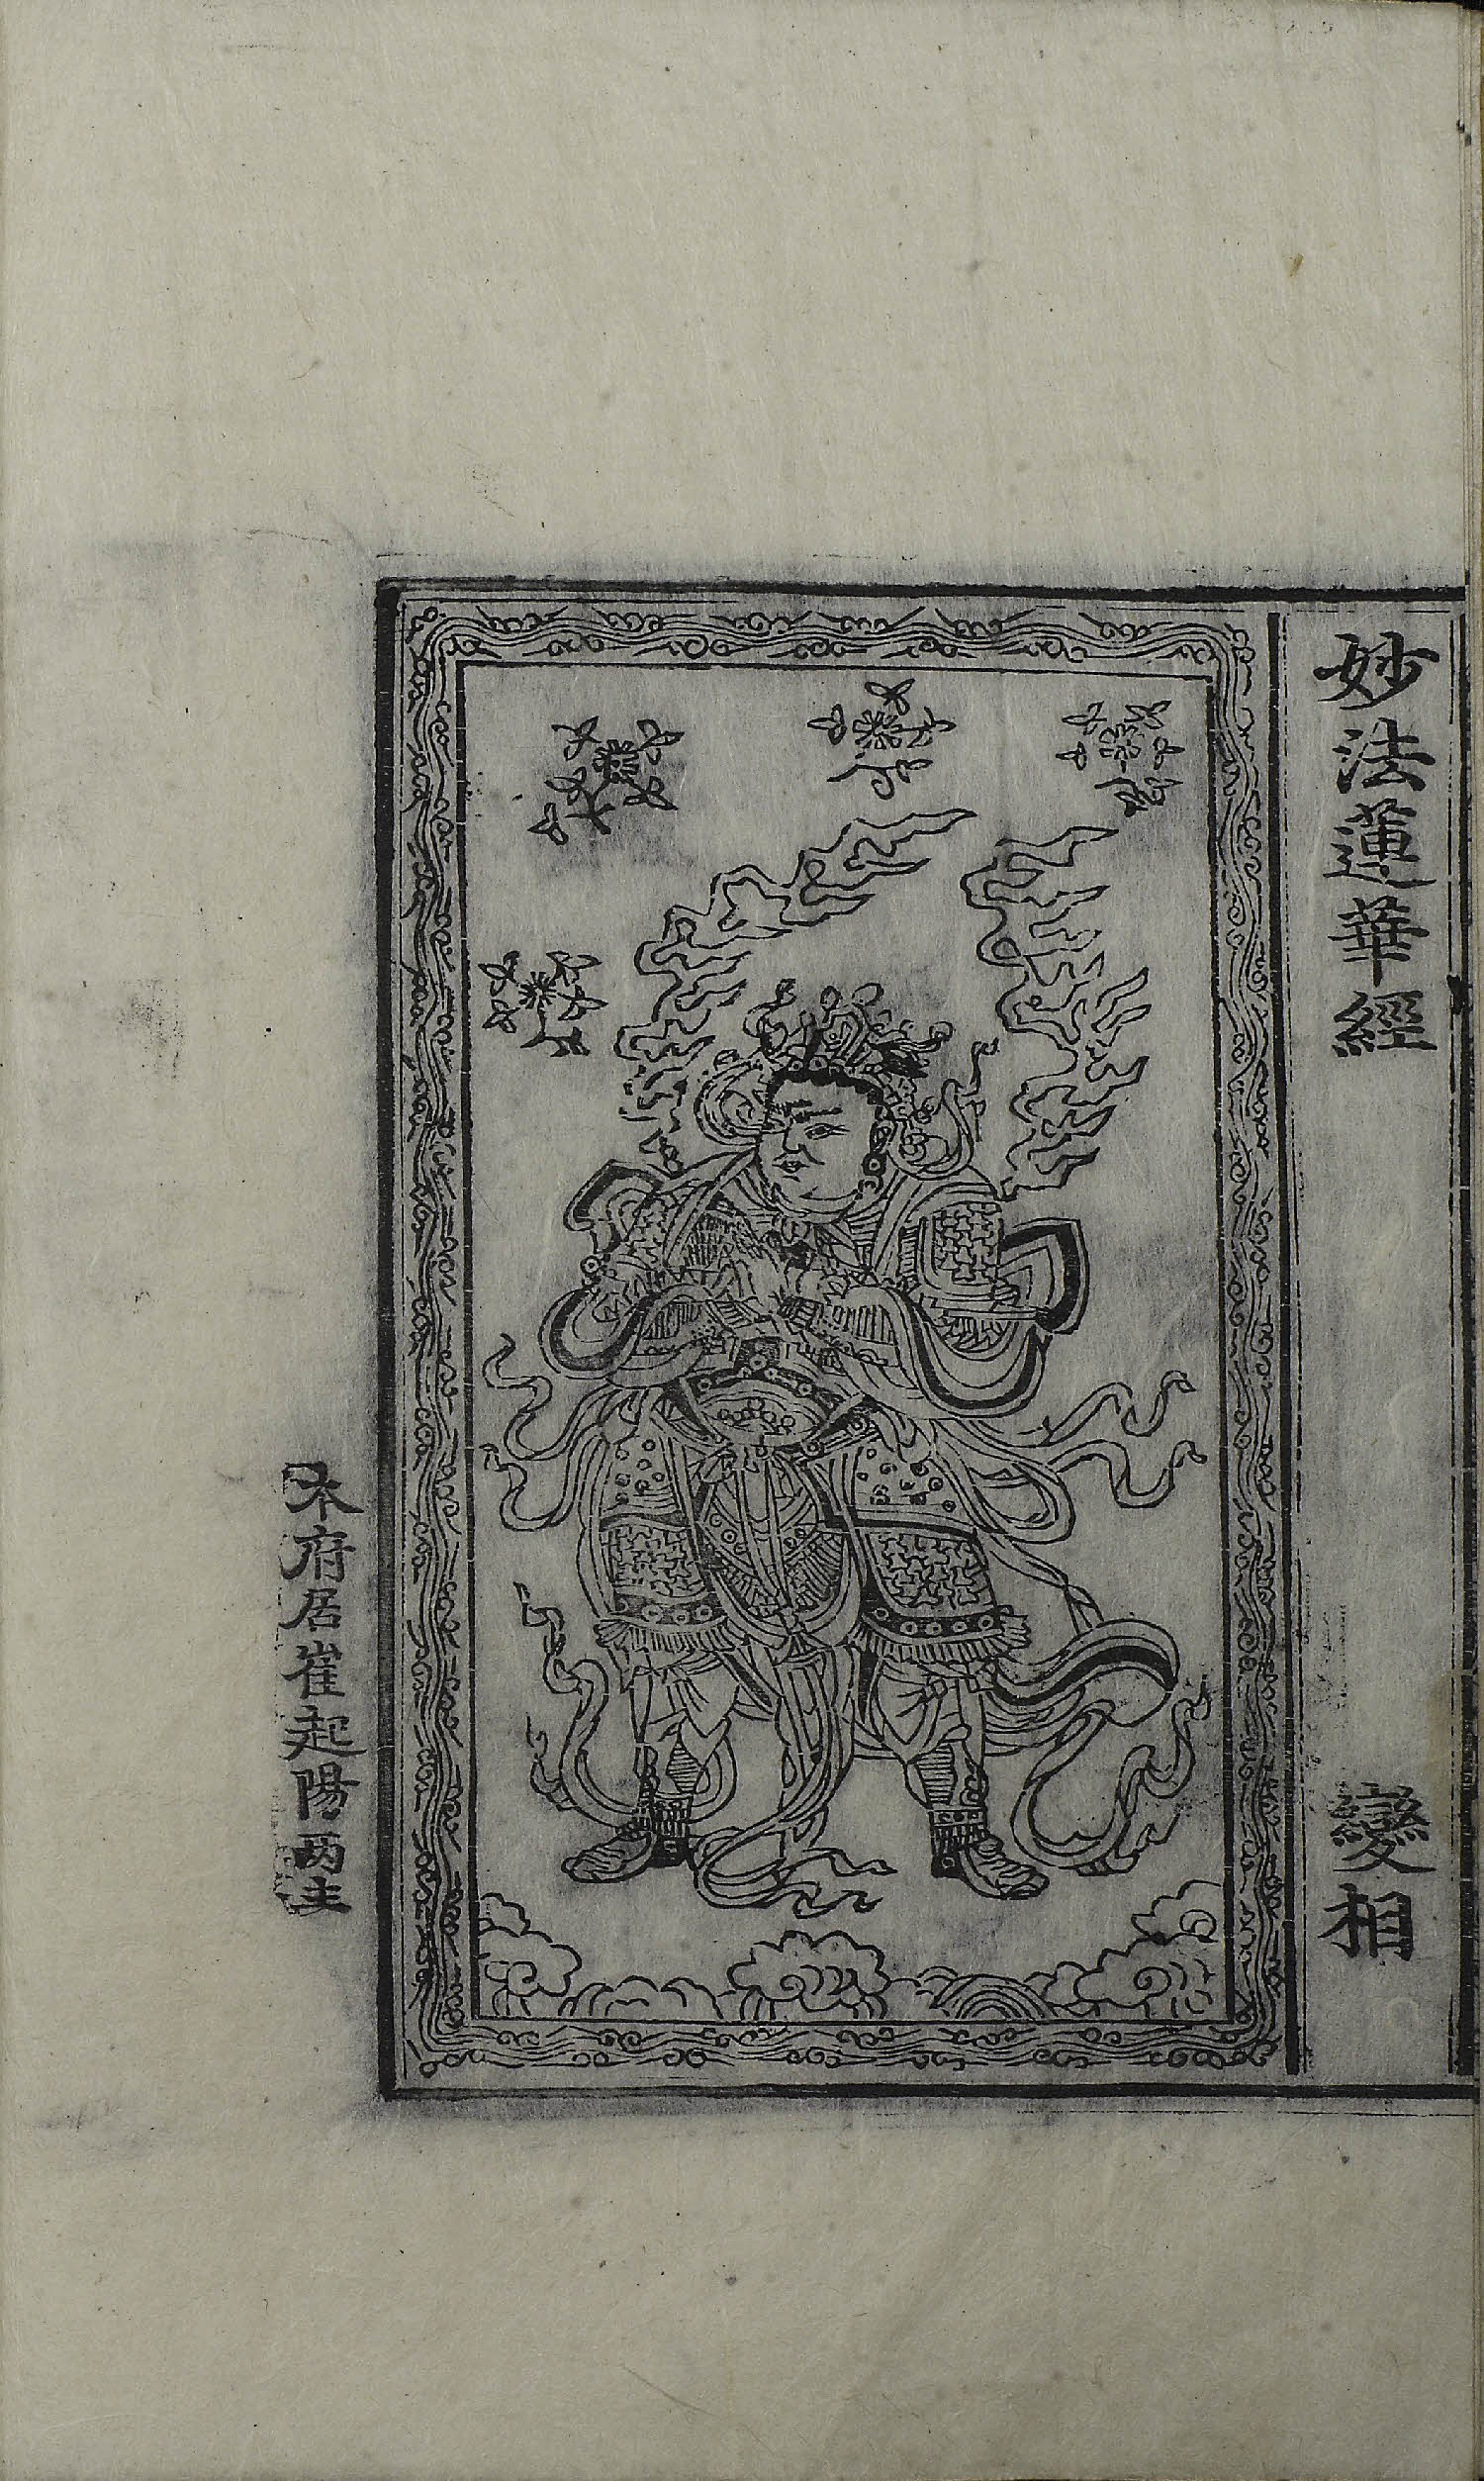 妙法蓮華經 變相
本府居崔起陽两主